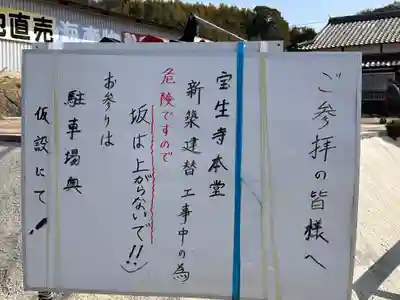 ご参拝の皆様へ
宝生寺本堂
新築建替工事中の為
危険ですので
坂は上がらないで!!
お参りは
駐車場奥
仮設にて!
直売